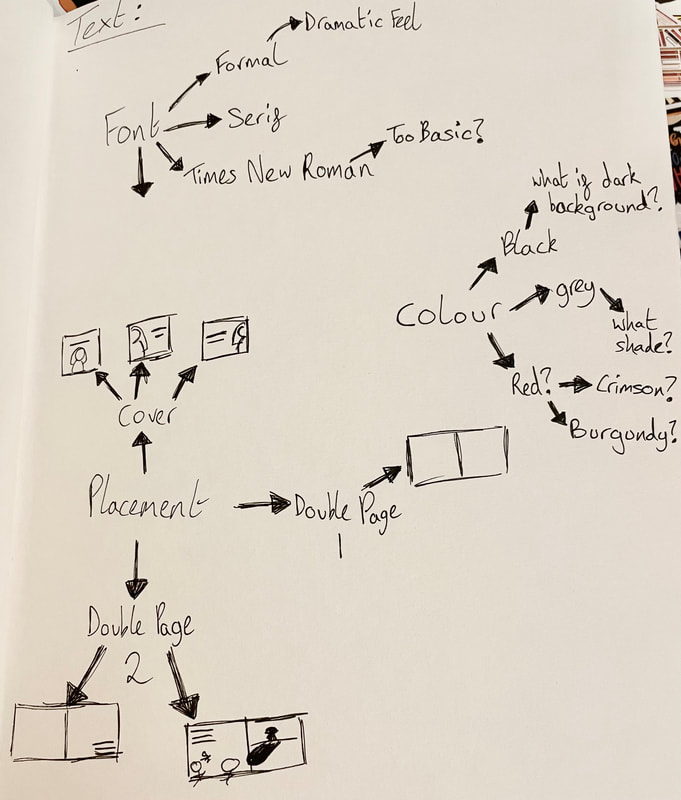 Text:
Dramatic Feel
Formal
Font
Serif
Times New Roman
Too Basic?
what if dark
background?
Black
Colour
grey
what
shade?
Red?
Crimson?
Burgundy?
Cover
Placement
Double Page
1
Double Page
2